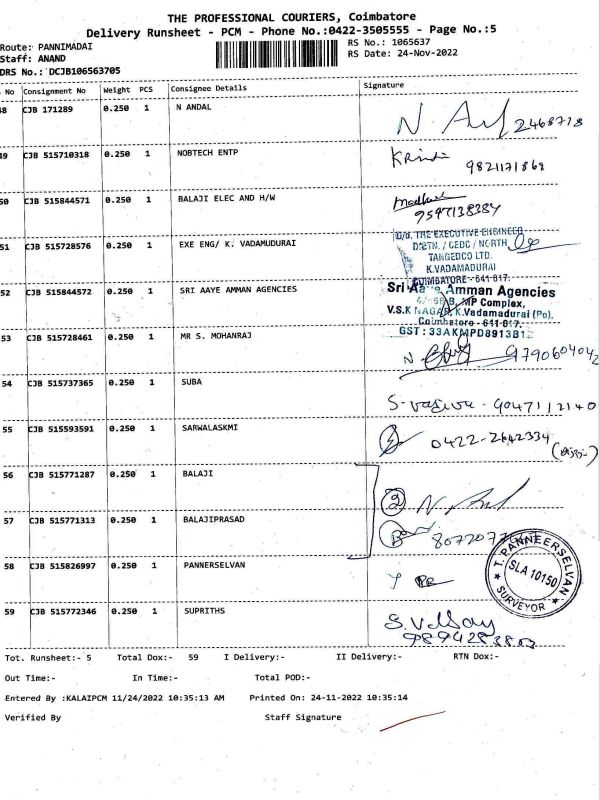 THE PROFESSIONAL COURIERS, Coimbatore
Delivery Runsheet - PCM - Phone No.:0422-3505555 - Page No.:5
Route: PANNIMADAI
RS No.: 1065637
Staff: ANAND
RS Date: 24-Nov-2022
DRS No.: DCJB106563705
No Consignment No Weight PCS Consignee Details Signature
48 CJB 171289 0.250 1 N ANDAL
2468718
49 CJB 515710318 0.250 1 NOBTECH ENTP
9821171869
50 CJB 515844571 0.250 1 BALAJI ELEC AND H/W
9597138384
51 CJB 515728576 0.250 1 EXE ENG/ K. VADAMUDURAI
O/o. THE EXECUTIVE ENGINEER
DISTN. / CEDC / NORTH
TANGEDCO LTD.
K.VADAMADURAI
COIMBATORE - 641 017.
52 CJB 515844572 0.250 1 SRI AAYE AMMAN AGENCIES
Sri Aaye Amman Agencies
MP Complex,
V.S.K NAGAR, K.Vadamadurai (Po),
Coimbatore - 641 017.
GST : 33AKMPD8913B1Z
53 CJB 515728461 0.250 1 MR S. MOHANRAJ
N. 9790604042
54 CJB 515737365 0.250 1 SUBA
90471 12140
55 CJB 515593591 0.250 1 SARWALASKMI
0422-2642334
56 CJB 515771287 0.250 1 BALAJI
2
57 CJB 515771313 0.250 1 BALAJIPRASAD
58 CJB 515826997 0.250 1 PANNERSELVAN
T. PANNEERSELVAN
SLA 10150
SURVEYOR
59 CJB 515772346 0.250 1 SUPRITHS
Tot. Runsheet:- 5 Total Dox:- 59 I Delivery:- II Delivery:- RTN Dox:-
Out Time:- In Time:- Total POD:-
Entered By :KALAIPCM 11/24/2022 10:35:13 AM Printed On: 24-11-2022 10:35:14
Verified By Staff Signature